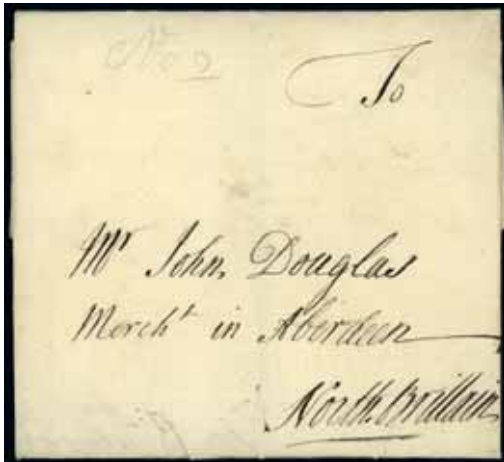 No 2
To
Mr John Douglas
Mercht in Aberdeen
North Brittain